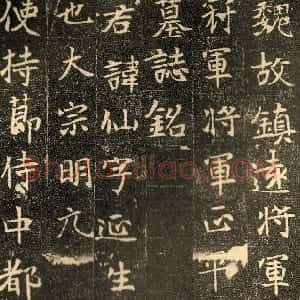 魏故鎮遠將軍
冠軍將軍正平
墓誌銘
君諱仙字延生
也大宗明元
使持節侍中都